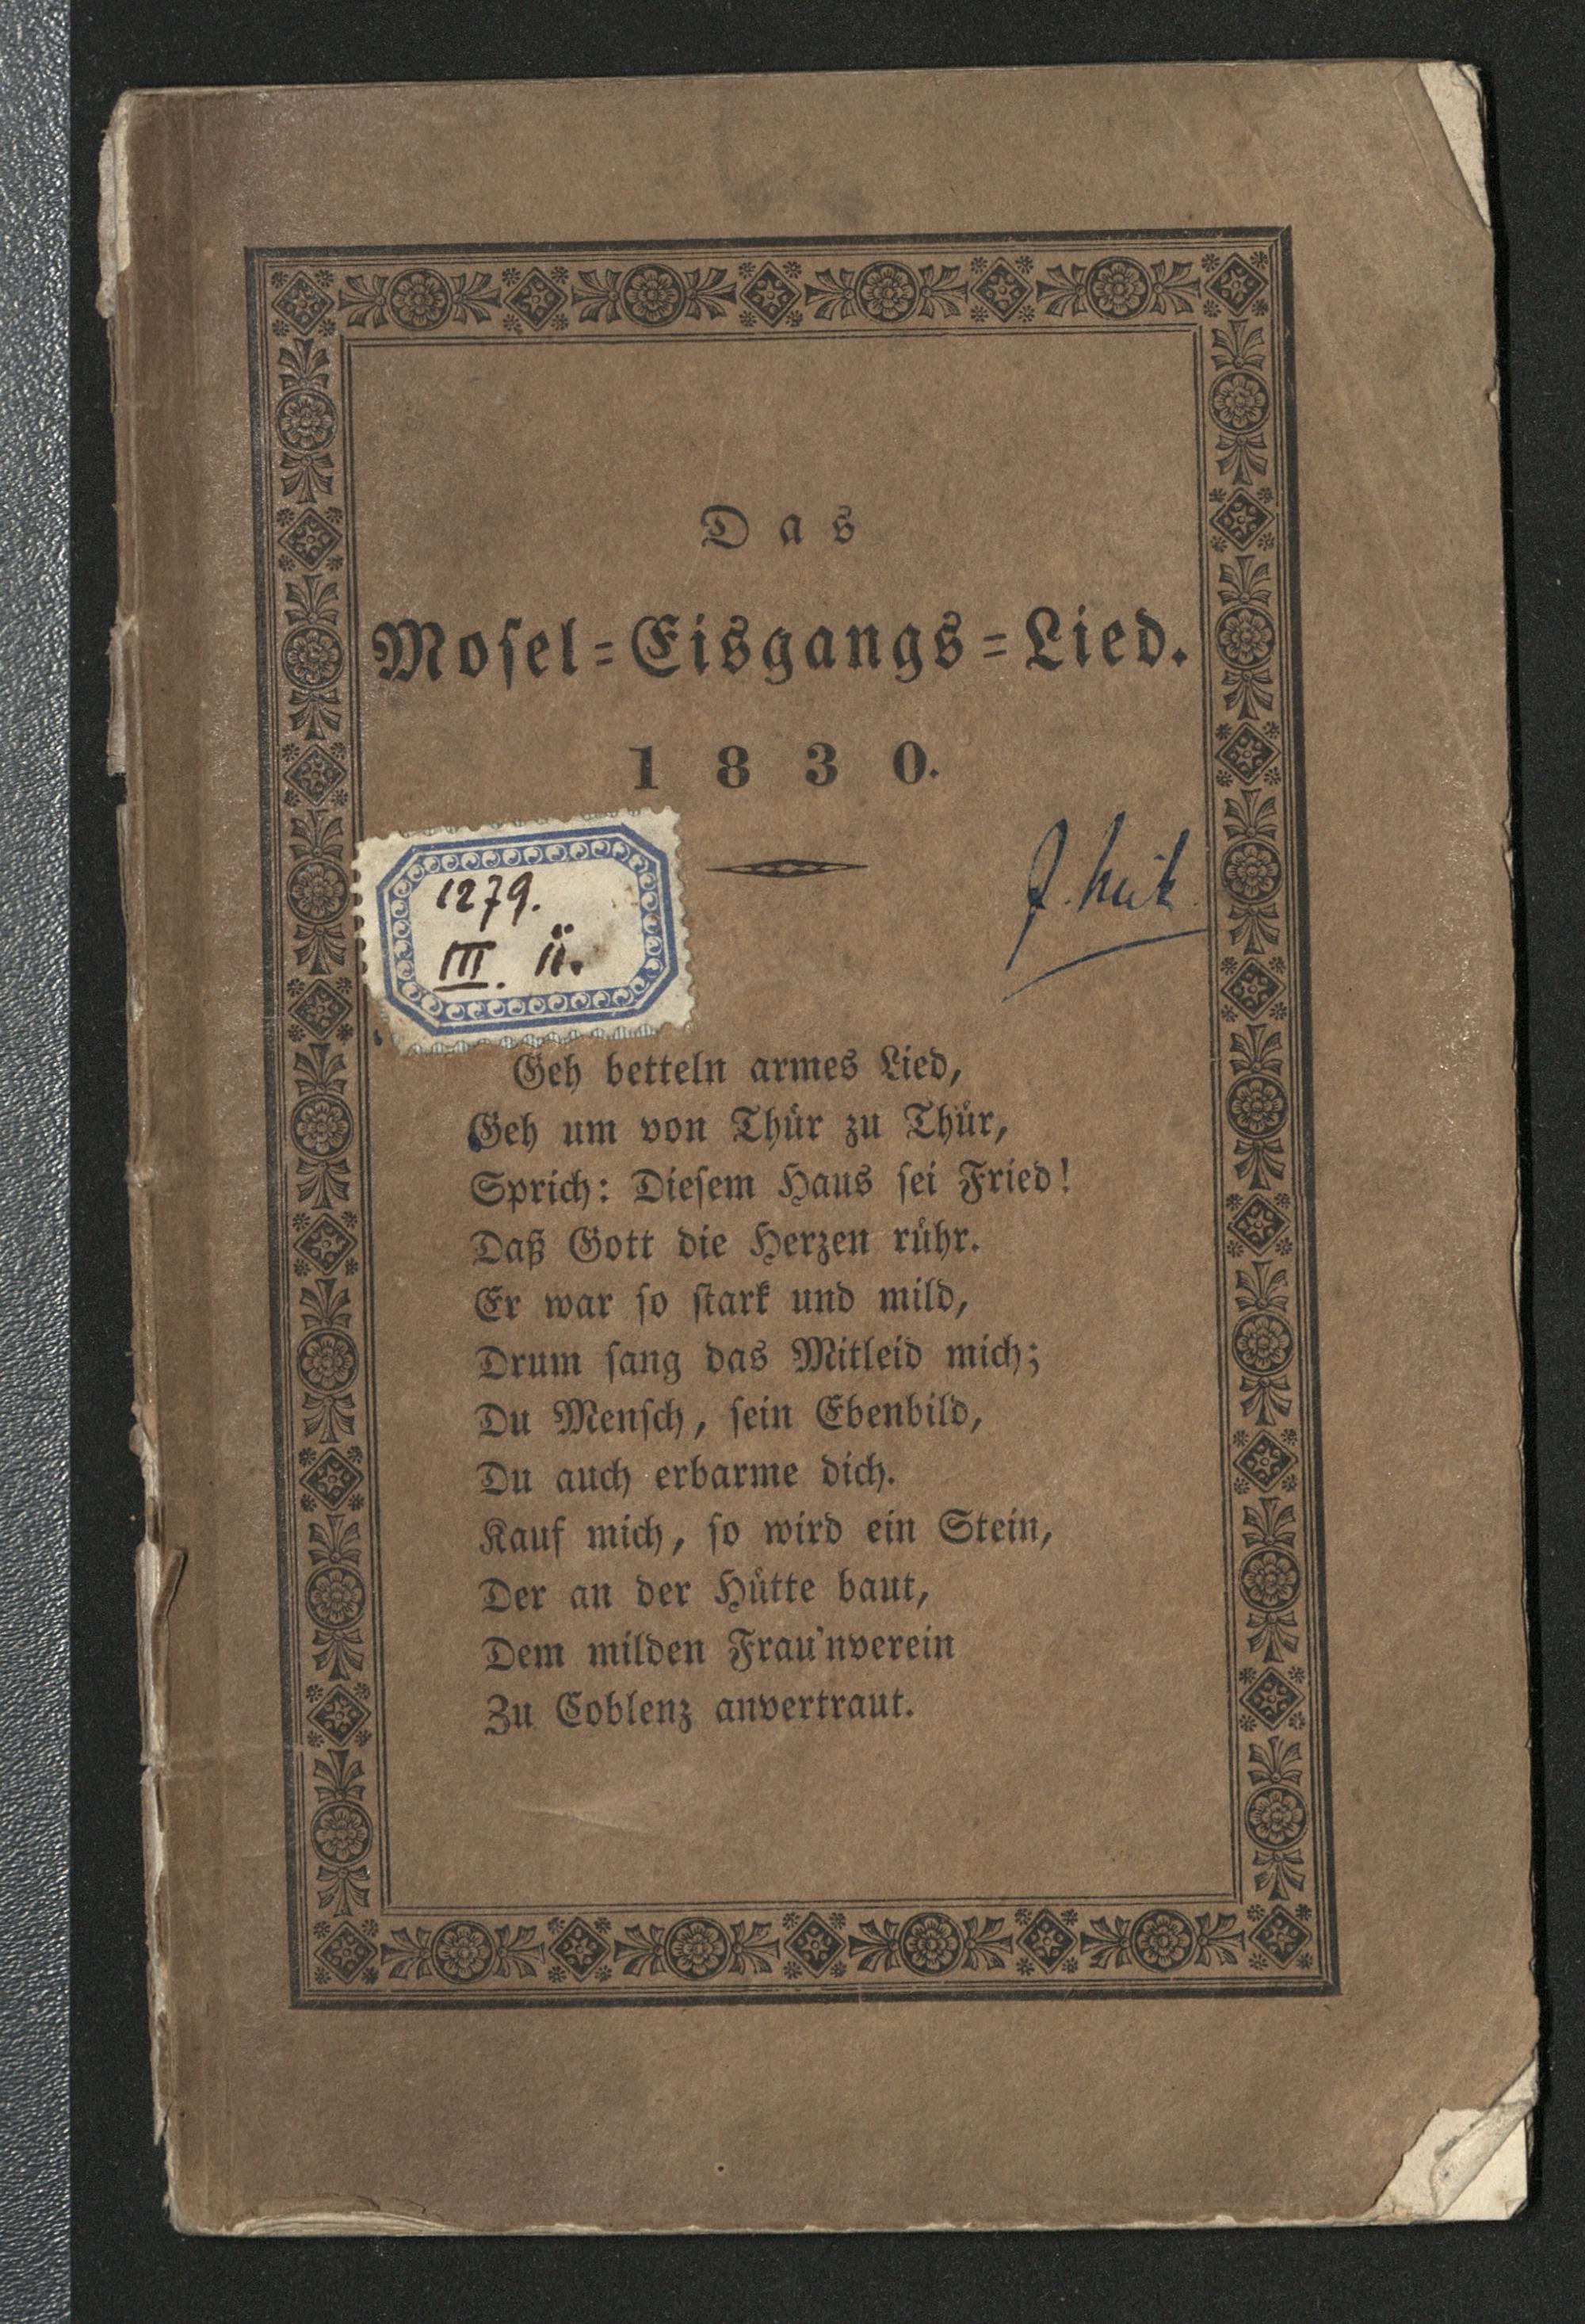 Das
Mosel=Eisgangs=Lied.
1830.
1279.
III. ii.
Geh betteln armes Lied,
Geh um von Thür zu Thür,
Sprich: Diesem Haus sei Fried!
Daß Gott die Herzen rühr.
Er war so stark und mild,
Drum sang das Mitleid mich;
Du Mensch, sein Ebenbild,
Du auch erbarme dich.
Kauf mich, so wird ein Stein,
Der an der Hütte baut,
Dem milden Frau'nverein
Zu Coblenz anvertraut.